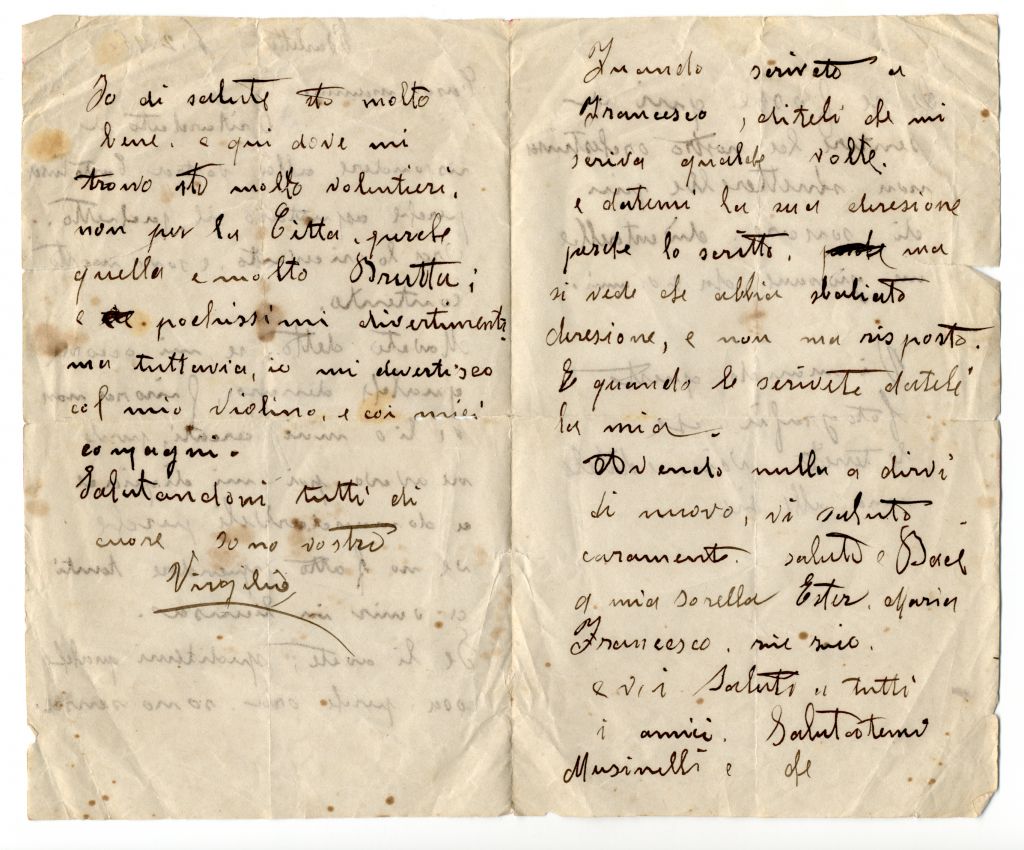 Io di salute sto molto
bene. e qui dove mi
trovo sto molto voluntieri,
non per la Citta, perche
quella e molto Brutta;
e pochissimi divertimenti
ma tuttavia, io mi divertisco
col mio Violino, e coi miei
compagni.
Salutandovi tutti di
cuore sono vostro
Virgilio
Quando scriveto a
Francesco, diteli che mi
scriva qualche volte.
e datemi la sua diresione
perche lo scritto, ma
si vede che abbia sbaliato
diresione, e non ma risposto.
E quando le scrivete datele
la mia.
Avendo nulla a dirvi
di nuovo, vi saluto
caramente. saluto e Baci
a mia sorella Ester. Maria
Francesco.
e voi Saluto a tutti
i amici. Salutatemi
Musinelli e